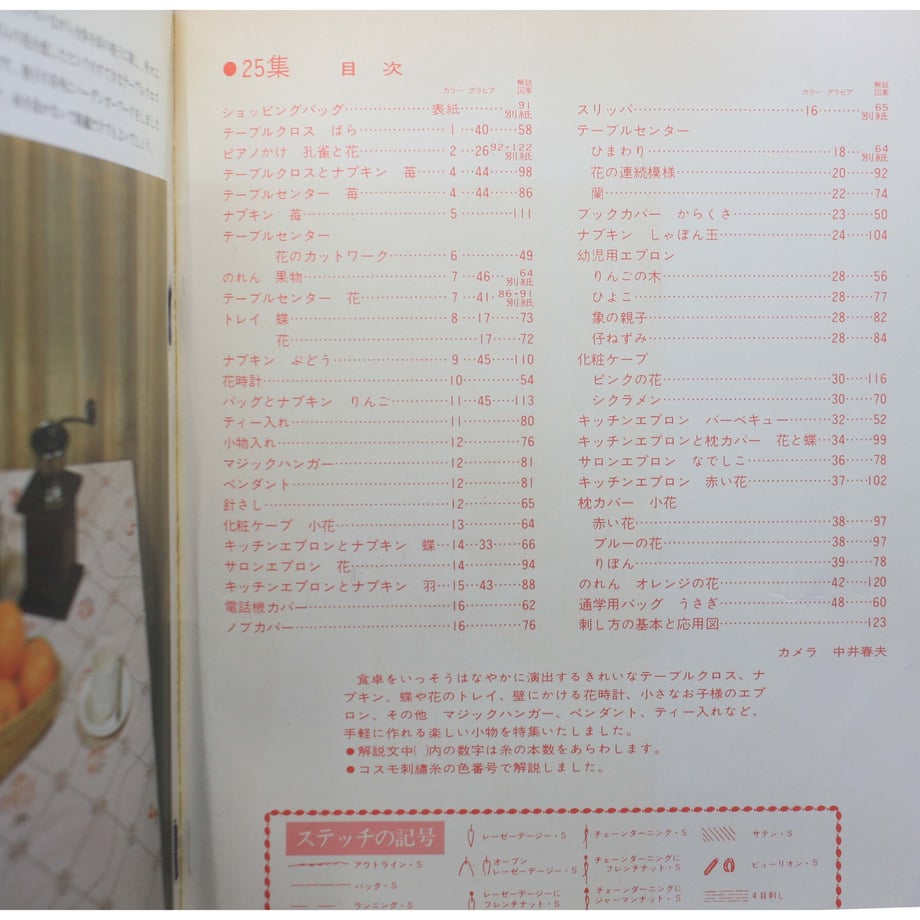 ●25集　目 次
カラー グラビア 解説図案
ショッピングバッグ………………表紙………91別紙
テーブルクロス　ばら………………1…40……58
ピアノかけ　孔雀と花………………2…26 92・122別紙
テーブルクロスとナプキン　苺……4…44……98
テーブルセンター　苺………………4…44……86
ナプキン　苺…………………………5…………111
テーブルセンター
花のカットワーク…………6…………49
のれん　果物…………………………7…46…64別紙
テーブルセンター　花………………7…41…86・91別紙
トレイ　蝶……………………………8…17……73
花……………………………17……72
ナプキン　ぶどう……………………9…45……110
花時計…………………………………10…………54
バッグとナプキン　りんご…………11…45……113
ティー入れ……………………………11…………80
小物入れ………………………………12…………76
マジックハンガー……………………12…………81
ペンダント……………………………12…………81
針さし…………………………………12…………65
化粧ケープ　小花……………………13…………64
キッチンエプロンとナプキン　蝶…14…33……66
サロンエプロン　花…………………14…………94
キッチンエプロンとナプキン　羽…15…43……88
電話機カバー…………………………16…………62
ノブカバー……………………………16…………76
カラー グラビア 解説図案
スリッパ………………………………16………65別紙
テーブルセンター
ひまわり……………………………18……64別紙
花の連続模様………………………20……92
蘭……………………………………22……74
ブックカバー　からくさ……………23……50
ナプキン　しゃぼん玉………………24……104
幼児用エプロン
りんごの木…………………………28……56
ひよこ………………………………28……77
象の親子……………………………28……82
仔ねずみ……………………………28……84
化粧ケープ
ピンクの花…………………………30……116
シクラメン…………………………30……70
キッチンエプロン　バーベキュー…32……52
キッチンエプロンと枕カバー　花と蝶…34……99
サロンエプロン　なでしこ…………36……78
キッチンエプロン　赤い花…………37……102
枕カバー　小花
赤い花………………………………38……97
ブルーの花…………………………38……97
りぼん………………………………39……78
のれん　オレンジの花………………42……120
通学用バッグ　うさぎ………………48……60
刺し方の基本と応用図………………………123
カメラ　中井春夫
食卓をいっそうはなやかに演出するきれいなテーブルクロス、ナ
プキン、蝶や花のトレイ、壁にかける花時計、小さなお子様のエプ
ロン、その他　マジックハンガー、ペンダント、ティー入れなど、
手軽に作れる楽しい小物を特集いたしました。
●解説文中( )内の数字は糸の本数をあらわします。
●コスモ刺繡糸の色番号で解説しました。
ステッチの記号
アウトライン・S
バック・S
ランニング・S
レーゼーデージー・S
オープンレーゼーデージー・S
レーゼーデージーにフレンチナット・S
チェーンダーニング・S
チェーンダーニングにフレンチナット・S
チェーンダーニングにジャーマンナット・S
サテン・S
ビューリオン・S
4目刺し